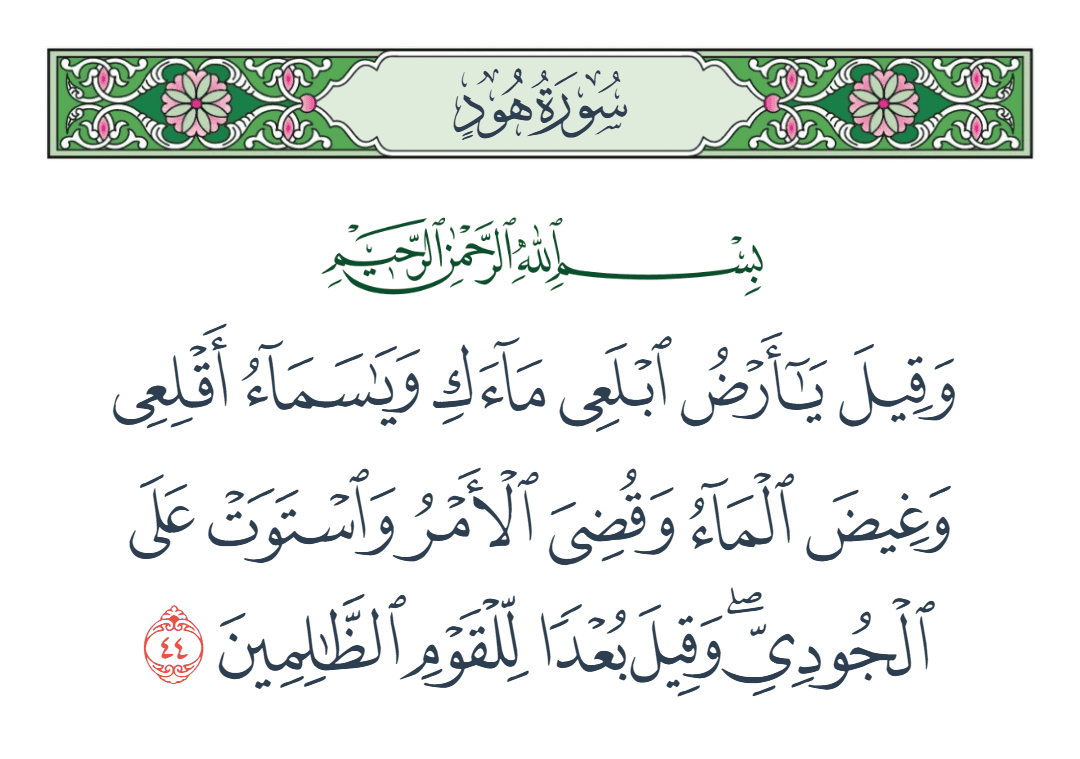 سُورَةُ هُودٍ
بِسْمِ ٱللَّهِ ٱلرَّحْمَٰنِ ٱلرَّحِيمِ
وَقِيلَ يَـٰٓأَرْضُ ٱبْلَعِى مَآءَكِ وَيَـٰسَمَآءُ أَقْلِعِى
وَغِيضَ ٱلْمَآءُ وَقُضِىَ ٱلْأَمْرُ وَٱسْتَوَتْ عَلَى
ٱلْجُودِىِّ ۖ وَقِيلَ بُعْدًا لِّلْقَوْمِ ٱلظَّـٰلِمِينَ ٤٤